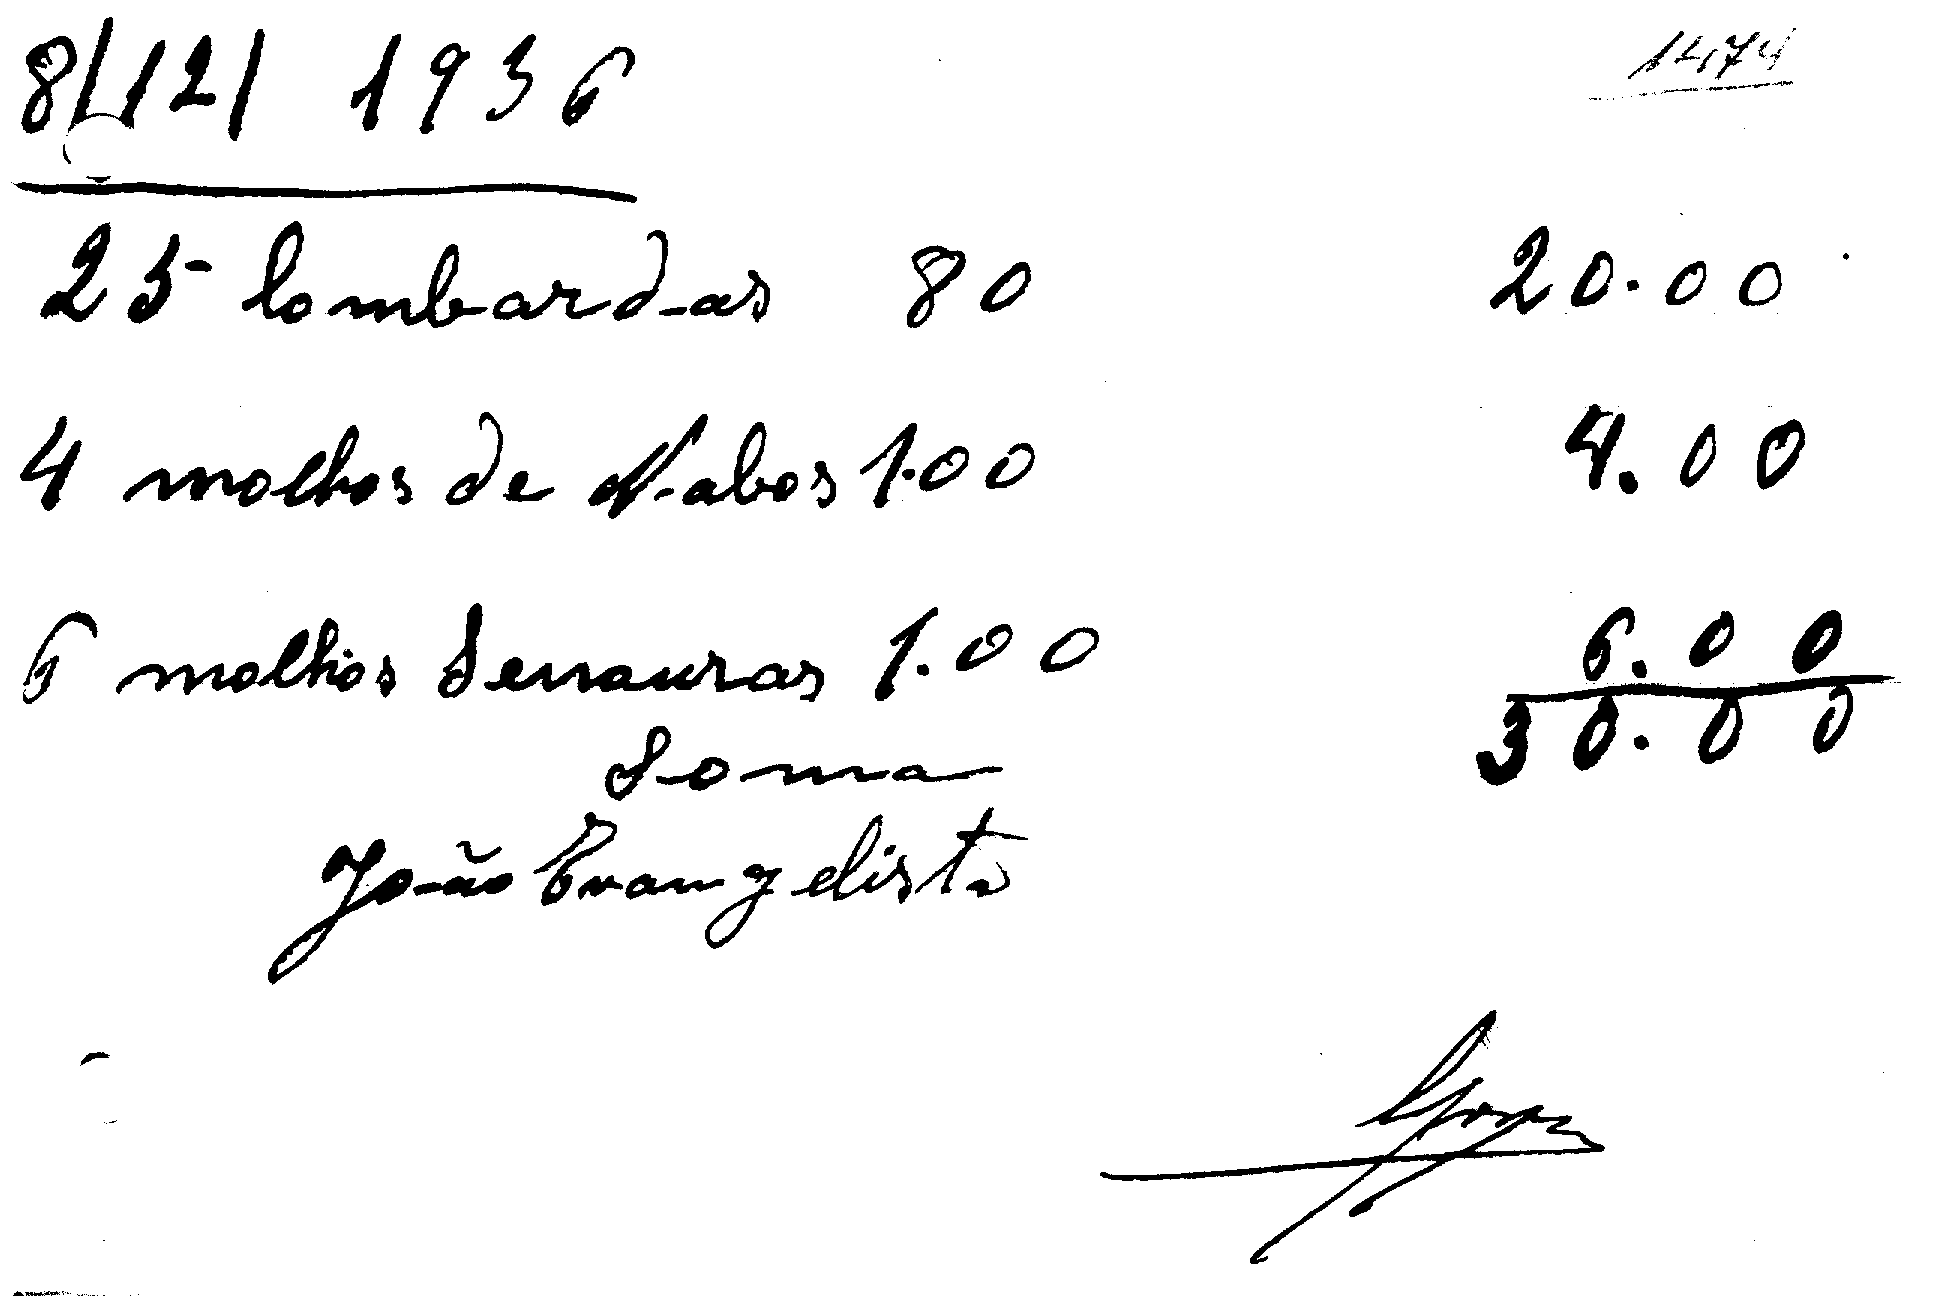 8/12/ 1936
1474
25 lombardas 80 20.00
4 molhos de Nabos 1.00 4.00
6 molhos Senouras 1.00 6.00
Soma 30.00
João Evangelista